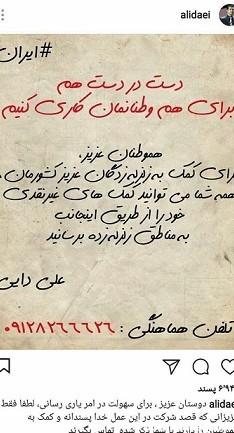 alidaei
#ایران
دست در دست هم
برای هم وطنانمان کاری کنیم
هموطنان عزیز،
برای کمک به زلزله زدگان عزیز کشورمان،
همه شما می توانید کمک های غیرنقدی
خود را از طریق اینجانب
به مناطق زلزله زده برسانید
علی دایی
تلفن هماهنگی : ۰۹۱۲۸۲۶۶۶۲۶
پسند
alidaei دوستان عزیز ، برای سهولت در امر یاری رسانی، لطفا فقط
عزیزانی که قصد شرکت در این عمل خدا پسندانه و کمک به
هموطنین را دارند با شما ذکر شده تماس بگیرند